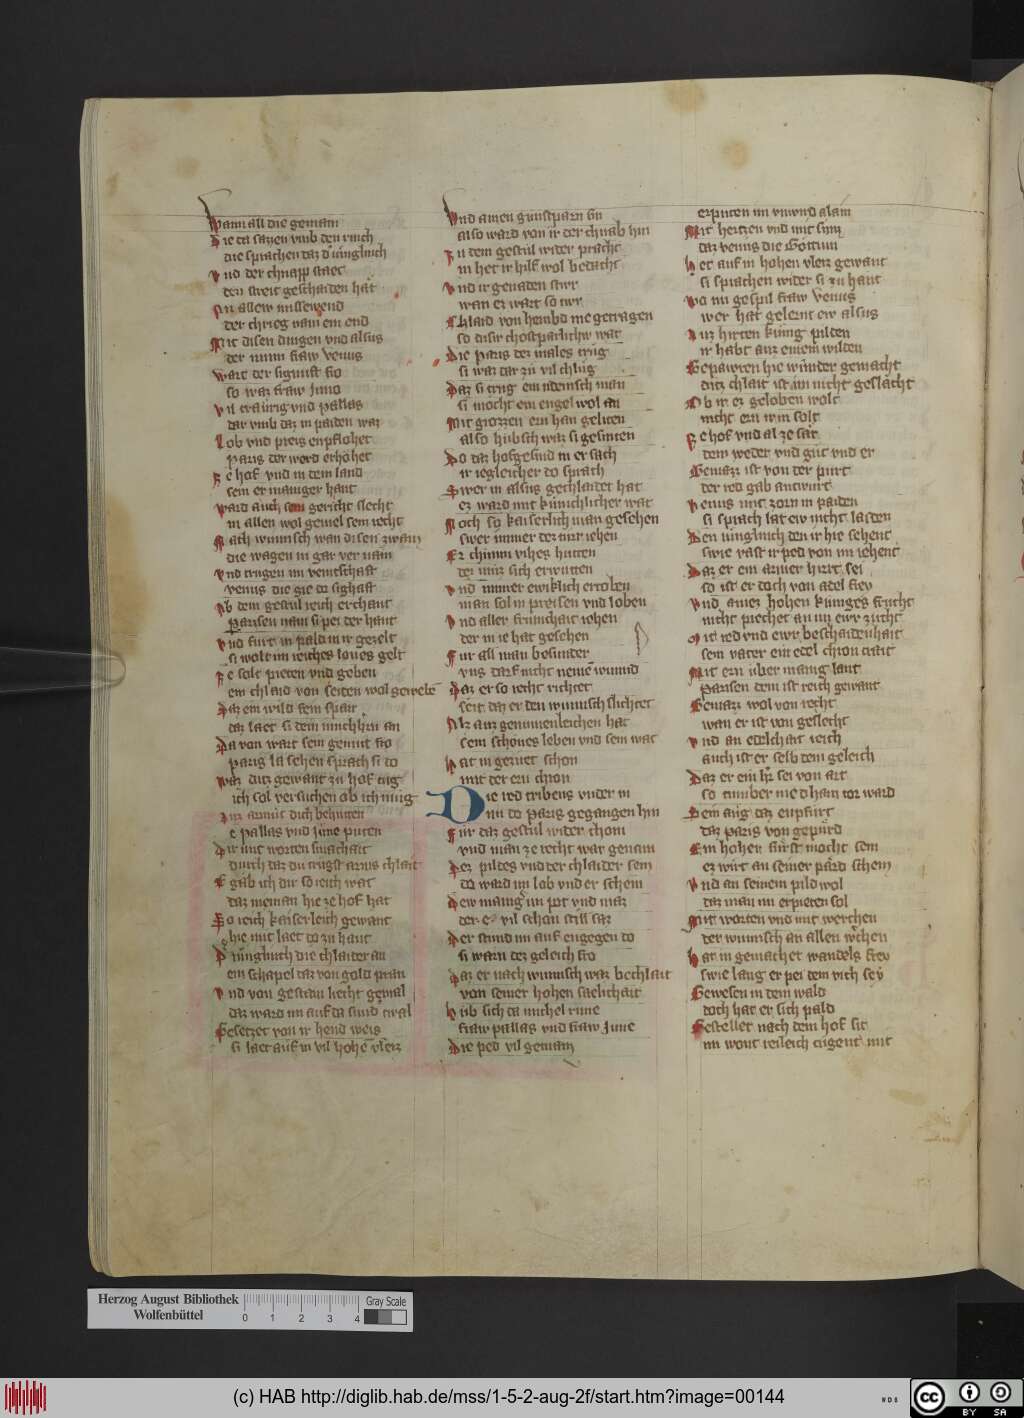 Wann all die gemain
Die da sazen vmb den rinch
die sprachen daz d' iunglinch
Vnd der chnapp staet
den streit geschaiden hat
An allew missewend
der chrieg nam ein end
Mit disen dingen vnd alsus
der minn fraw Venus
Wart der signuft fro
so waz fraw Juno
Vil traurig vnd pallas
dar vmb daz in paiden waz
Lob vnd preis enpflohet
Paris der word erhohet
Ze hof vnd in dem land
sein er maniger hant
Ward auch sein gericht slecht
in allen wol geuiel sein recht
Nach wunnsch wan disen zwain
die wagen in gar ver nain
Vnd trugen im veintschaft
Venus die gie do sighaft
Ab dem gestul reich erchant
Parisen nam si pei der hant
Vnd furt in pald in ir gezelt
si wolt im reiches loues gelt
Ze solt pieten vnd geben
ein chlaid von seiden wol geweben
Daz ein wild fein span
daz laet si dem iunchh'rn an
Da von wart sein gemut fro
Paris la sehen sprach si do
Waz ditz gewant zu hof tug
ich sol versuchen ob ich mug
Vor armut dich behuten
e pallas vnd June puten
Dir mit worten smachait
durch daz du trugst arms chlait
E gab ich dir so reich wat
daz nieman hie ze hof hat
So reich kaiserleich gewant
hie mit laet do zu hant
D' iunglinch die chlaider an
ein schapel daz von gold pran
Vnd von gestain liecht gemal
daz ward im auf da sund twal
Gesetzet von ir hend weis
si laet auf in vil hohen vleiz
Vnd ainen gunstparn sin
also ward von ir der chnab hin
In dem gestul wider pracht
in het ir hilf wol bedacht
Vnd ir genaden stiwr
wan er wart so tiwr
Chlaid von hembd nie getragen
so diser chostparlicher wat
Die paris dez males trug
si waz dar zu vil chlug
Daz si trug ein irdensch man
si mocht ein engel wol an
Mit grozzen ern han geliten
also hubsch waz si gesniten
Do daz hofgesind in er sach
ir iegleicher do sprach
Swer in alsus gechlaidet hat
er ward mit kunichlicher wat
Noch so kaiserlich man gesehen
swer immer dez tiwr iehen
Er chunn vihes hueten
der muz sich erwueten
Vnd immer ewiklich ertoben
man sol in preisen vnd loben
Vnd aller frumchait iehen
der in ie hat gesehen
Fur all man besunder
vns darf nicht nemen wunnd
Daz er so recht richtet
seit daz er den wunnsch slichtet
Alz auz genumenleichen hat
sein schones leben vnd sein wat
Hat in geziret schon
mit der ern chron
Die red tribens vnder in
vnn do paris gegangen hin
Fur daz gestul wider chom
vnd man ze recht war genam
Dez pildes vnd der chlaider sein
do ward im lob vnd er schein
Dew manig im pot vnd maz
der e vil schon still saz
Der stund im auf engegen do
si warn dez geleich fro
Daz er nach wunnsch waz bechlait
von seiner hohen saelichait
Hub sich da michel rune
fraw pallas vnd fraw June
Die ped vil gemain
erputen im vnwird alain
Mit hertzen vnd mit sinn
daz venus die Gottinn
Het auf in hohen vleiz gewant
si sprachen wider si zu hant
Wa nu gespil fraw Venus
wer hat gelernt ew alsus
Auz hirten kunig pilden
ir habt auz einem wilden
Gepawren hie wunder gemacht
ditz chlait ist im nicht geslacht
Ob ir ez geloben wolt
nicht ern ir in solt
Ze hof vnd al ze stat
dem weder vnd gut vnd er
Gemazz ist von der purt
der red gab antwurt
Venus mit zorn in paiden
si sprach lat ew nicht laiden
Den iunglinch den ir hie sehent
swie vast ir ped von im iehent
Daz er ein armer hirt sei
so ist er doch von adel frey
Vnd ainez hohen kuniges frucht
nicht prechet an im ewr zucht
Mit red vnd ewr beschaidenhait
sein vater ein edel chron trait
Mit ern uber manig lant
Parisen dem ist reich gewant
Gemazz wol von recht
wan er ist von geslecht
Vnd an edelchait reich
auch ist er selb dem geleich
Daz er ein h'r sei von art
so tumber nie d haim tor ward
Sein aug daz enpfurt
daz paris von gepurd
Ein hoher furst mocht sein
ez wirt an seiner pard schein
Vnd an seinem pild wol
daz man im erpieten sol
Mit worten vnd mit werchen
der wunnsch an allen w'chen
Hat in gemachet wandels frey
swie lang er pei dem vich sey
Gewesen in dem wald
doch hat er sich pald
Gestellet nach dem hof sit
im wont reileich tugent mit
Herzog August Bibliothek
Wolfenbüttel
0 1 2 3 4
Gray Scale
(c) HAB http://diglib.hab.de/mss/1-5-2-aug-2f/start.htm?image=00144
WDB
cc
BY SA